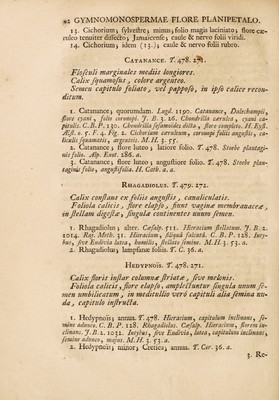 92 GYMNOMONOSPERMAE FLORE PLANIPETALO.
13. Cichorium; sylvestre; minus; folio magis laciniato; flore cæ-
ruleo tenuiter dissecto; Jamaicense; caule & nervo folii viridi.
14. Cichorium; idem (13.); caule & nervo folii rubro.
CATANANCE. T. 478. 271.
Flosculi marginales mediis longiores.
Calix squamosus, colore argenteo.
Semen capitulo foliato, vel papposo, in ipso calice recon-
ditum.
1. Catanance; quorumdam. Lugd. 1190. Catanance, Dalechampii,
flore cyani, folio coronopi. J. B. 3. 26. Chondrilla cærulea, cyani ca-
pitulo. C. B. P. 130. Chondrilla sesamoides dicta, flore completo. H. Eyst.
Æst. o. 5. F. 4. Fig. 2. Cichorium cæruleum, coronopi foliis angustis, ca-
liculis squamatis, argenteis. M. H. 3. 55.
2. Catanance; flore luteo; latiore folio. T. 478. Stoebe plantagi-
nis folio. Alp. Exot. 286. a.
3. Catanance; flore luteo; angustiore folio. T. 478. Stoebe plan-
taginis folio, angustifolia. H. Cath. a. a.
RHAGADIOLUS. T. 479. 272.
Calix constans ex foliis angustis, canaliculatis.
Foliola calicis, flore elapso, fiunt vaginæ membranaceæ,
in stellam digestæ, singula continentes unum semen.
1. Rhagadiolus; alter. Cæsalp. 511. Hieracium stellatum. J. B. 2.
2014. Raj. Meth. 31. Hieracium, siliquâ falcatâ. C. B. P. 128. Inty-
bus, sive Endivia lutea, humilis, stellato semine. M. H. 3. 53. a.
2. Rhagadiolus; lampsanæ foliis. T. C. 36. a.
HEDYPNOIS. T. 478. 271.
Calix floris instar columnæ striatæ, sive melonis.
Foliola calicis, flore elapso, amplectuntur singula unum se-
men umbilicatum, in meditullio verò capituli alia semina nu-
da, capitulo instructa.
1. Hedypnois; annua. T. 478. Hieracium, capitulum inclinans, se-
mine adunco. C. B. P. 128. Rhagadiolus. Cæsalp. Hieracium, florem in-
clinans. J. B. 2. 1032. Intybus, sive Endivia, lutea, capitulum inclinans,
semine adunco, majus. M. H. 3. 53. a.
2. Hedypnois; minor; Cretica; annua. T. Cor. 36. a.
3. Re-